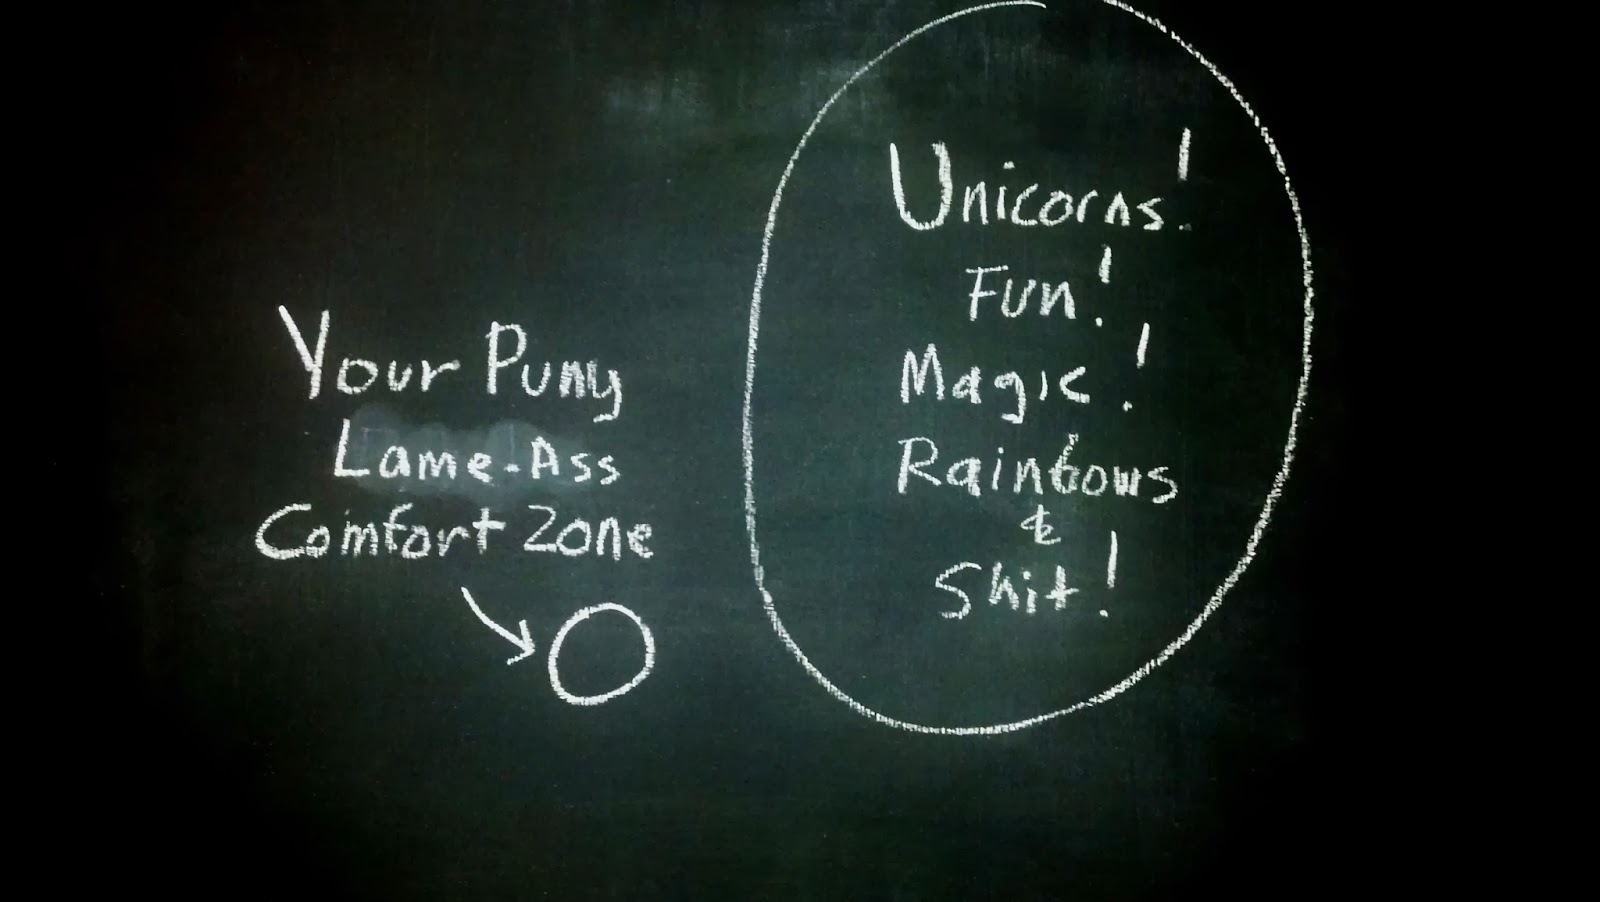 Your Puny
Lame-Ass
Comfort Zone
Unicorns!
Fun!
Magic!
Rainbows
&
Shit!